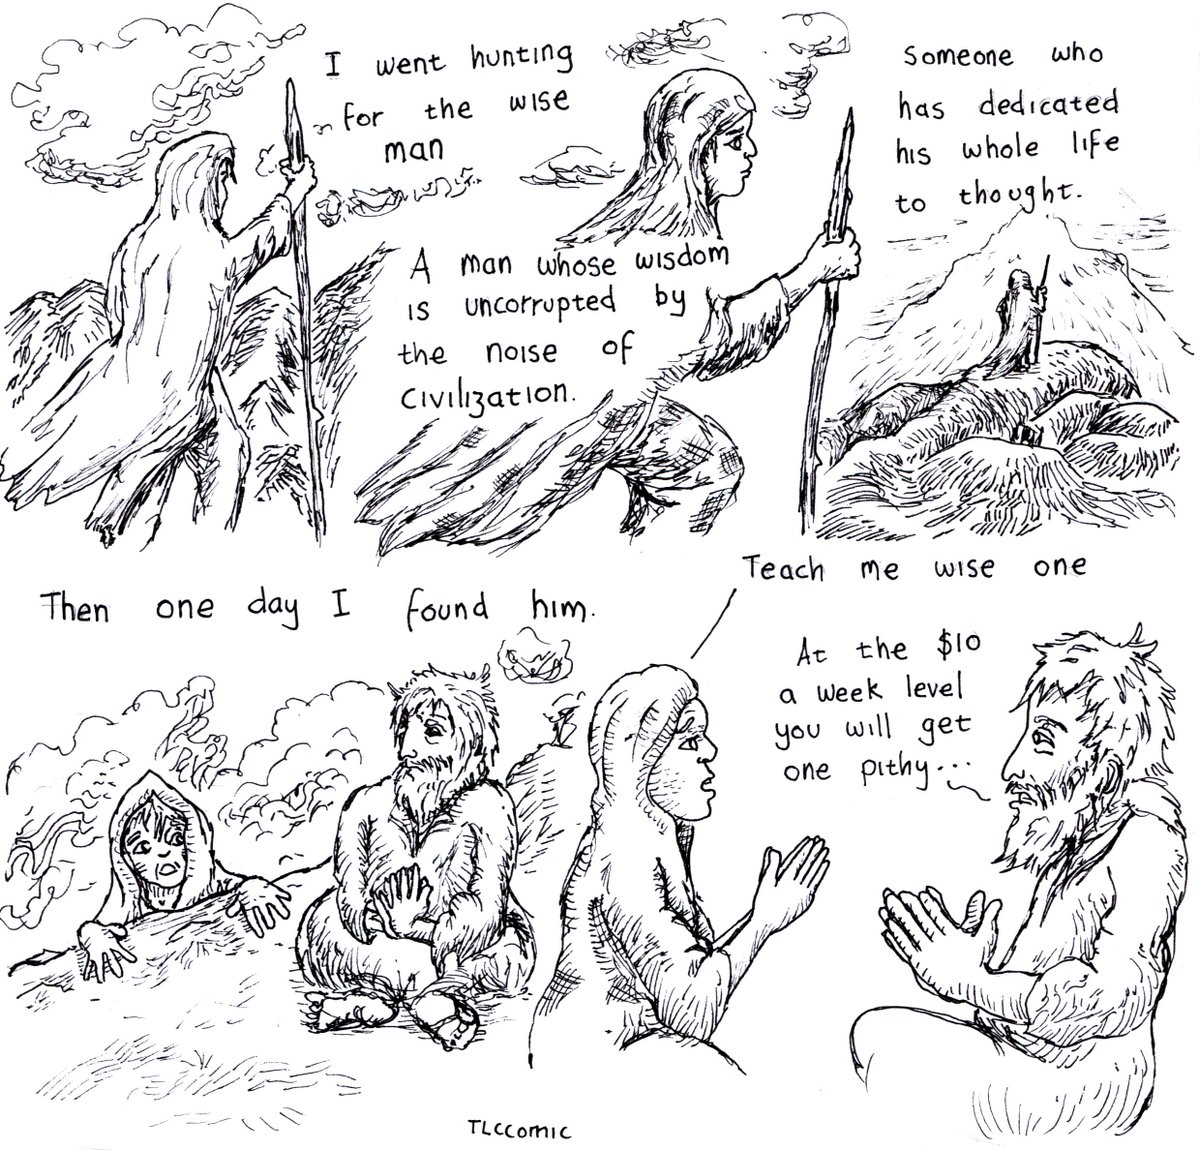 I went hunting
for the wise
man
A man whose wisdom
is uncorrupted by
the noise of
civilization.
Someone who
has dedicated
his whole life
to thought.
Then one day I found him.
Teach me wise one
At the $10
a week level
you will get
one pithy...
TLCcomic